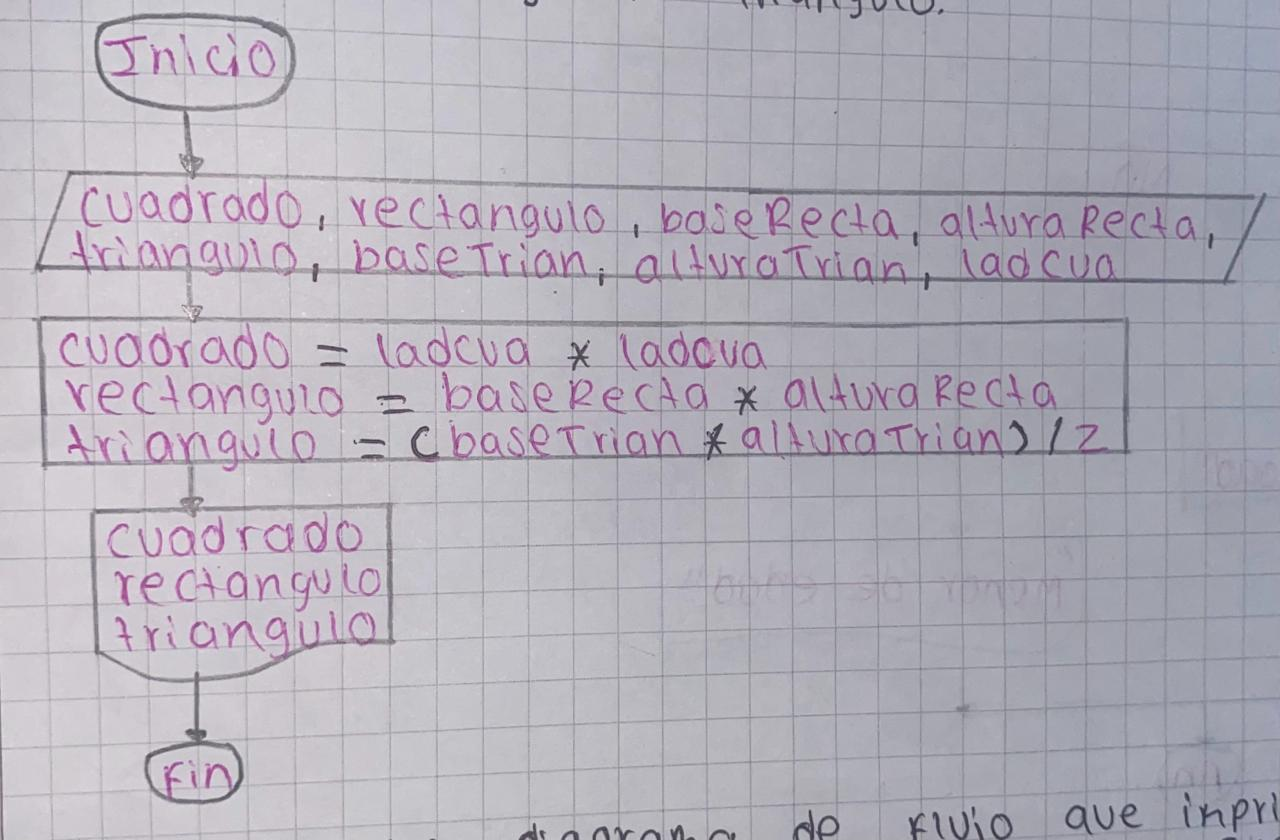 triangulo.
Inicio
cuadrado, rectangulo, baseRecta, alturaRecta,
triangulo, baseTrian, alturaTrian, ladcua
cuadrado = ladcua * ladcua
rectangulo = baseRecta * alturaRecta
triangulo = (baseTrian * alturaTrian) / 2
cuadrado
rectangulo
triangulo
Fin
diagrama de flujo que inpri